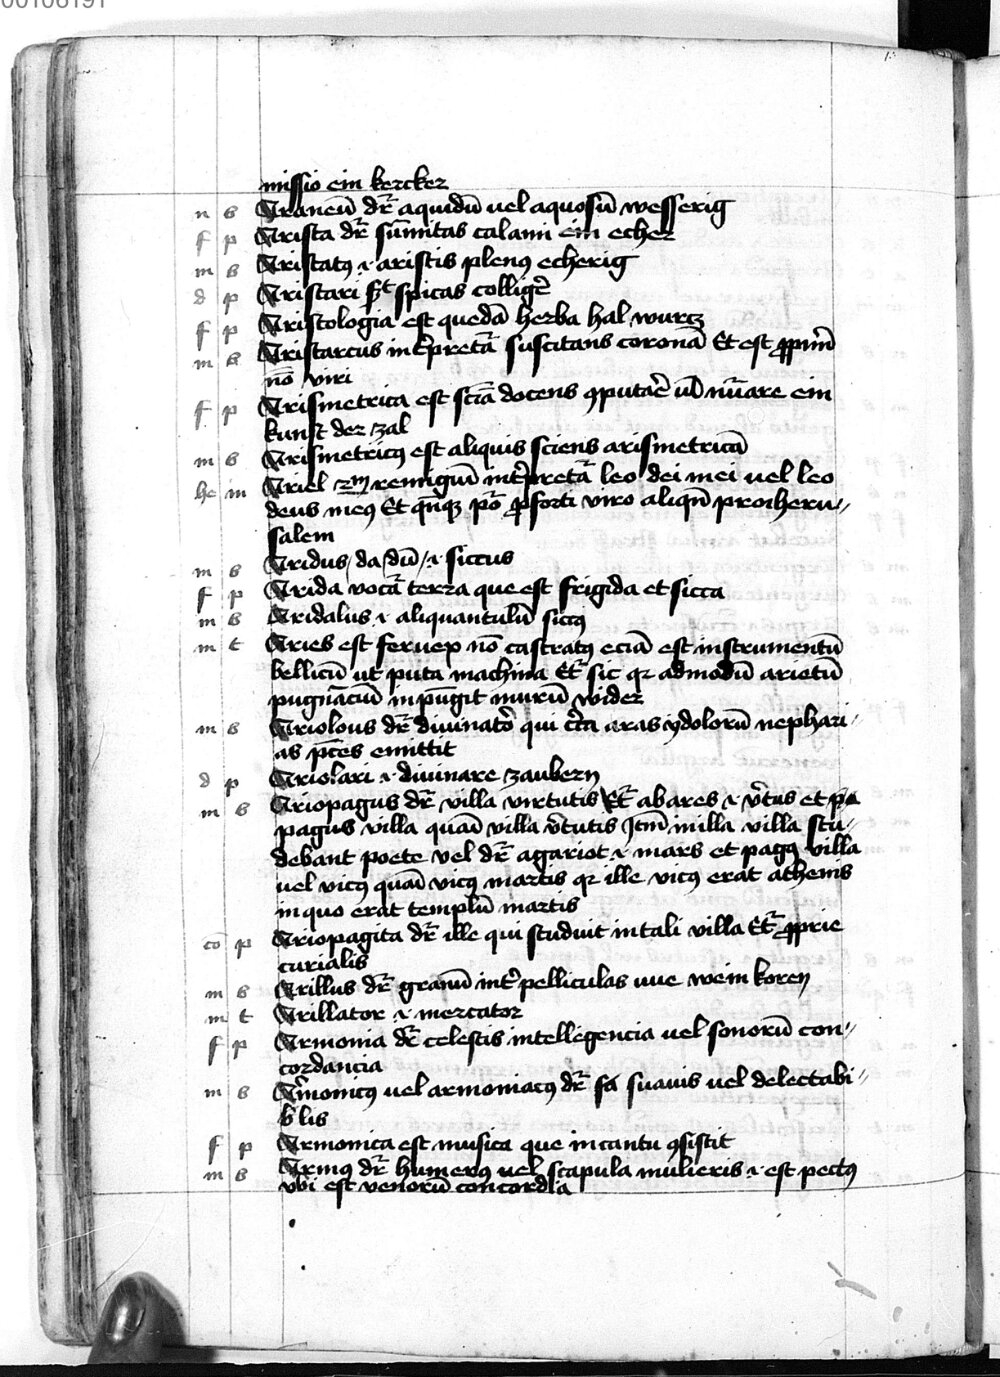 00106191
missio ein kercker
n b Araneū dr̄ aquidū uel aquosū wesserig
f p Arista dr̄ sūmitas calami ein echer
m b Aristatꝰ .i. aristis plenꝰ echerig
d p Aristari spicas colligē
f p Aristologia est quedā herba hal wurcz
m b Aristarcus int̄pretat̄ suscitans coronā Et est ꝓpriū
nō viri
f p Arismetrica est scīa docens ꝯputāe ūl nūare ein
kunst der zal
m b Arismetricꝰ est aliquis sciens arismetricā
he m Ariel remigiū int̄pretat̄ leo dei mei uel leo
deus meꝰ Et pō ꝓ forti viro aliqn̄ pro iheru
salem
m b Aridus da dū .i. siccus
f p Arida vocat̄ terra que est frigida et sicca
m b Aridalus .i. aliquantulū siccꝰ
m t Aries est feruex nō castratꝰ eciā est instrumentū
bellicū ut puta machina Et sic qr admodū arietū
pugnāciū inpūgit murū wider
m b Ariolous dr̄ diuinator̄ qui cir̄ca aras ydolorū nephari
as p̄ces emittit
d p Ariolari .i. diuinare zaubern
m b Ariopagus dr̄ villa virtutis Et abares .i. v̄tus et
pagus villa quasi villa v̄tutis in illa villa stu
debant poete vel dr̄ ab ariot .i. mars et pagꝰ villa
uel vicꝰ quasi vicꝰ martis qr ille vicꝰ erat athenis
in quo erat templū martis
cō p Ariopagita dr̄ ille qui studuit in tali villa Et ꝓprie
curialis
m b Arillus dr̄ granū int̄ pelliculas uue wein koren
m t Arillator .i. mercator
f p Armonia dr̄ celestis intellegencia uel sonorū con
cordancia
m b Armonicꝰ uel armoniacꝰ dr̄ suauis uel delectabi
lis
f p Armonica est musica que in cantu ꝯsistit
m b Armꝰ dr̄ humerꝰ uel scapula mulieris .i. est pectꝰ
vbi est venorū concordia